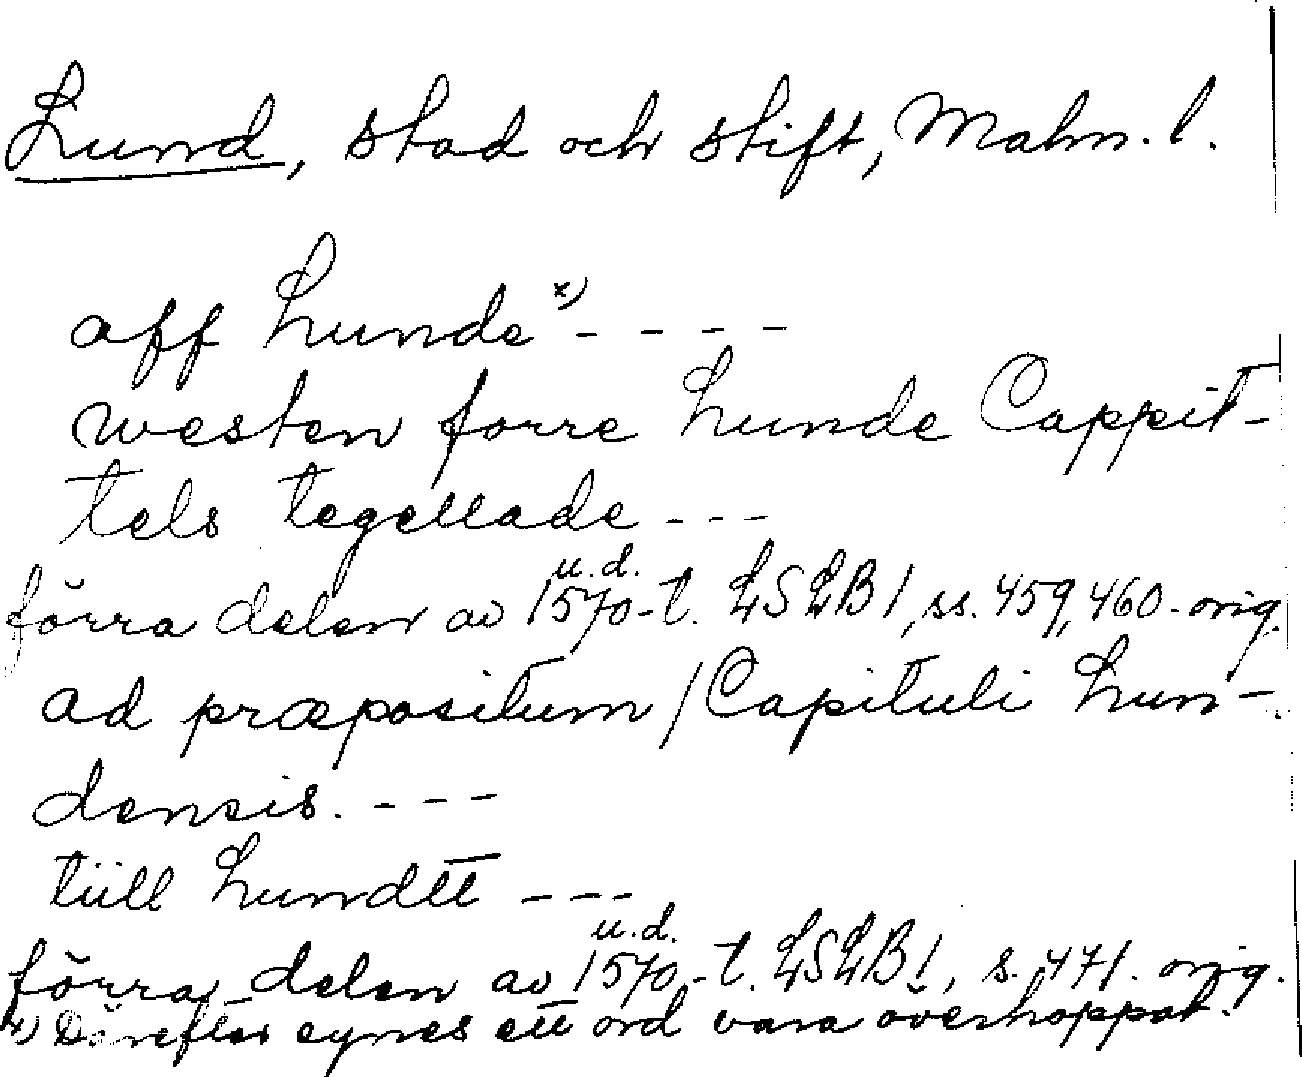 Lund, stad och stift, Malm. l.
aff Lunde x) - - - -
westen forre Lunde Cappit-
tels tegellade - - -
u. d.
förra delen av 1570-t. LSLB 1, ss. 459, 460 - orig.
ad præpositum / Capituli Lun-
densis. - - -
tüll Lundtt - - -
u. d.
förra delen av 1570-t. LSLB 1, s. 471. orig.
x) Därefter synes ett ord vara överhoppat.